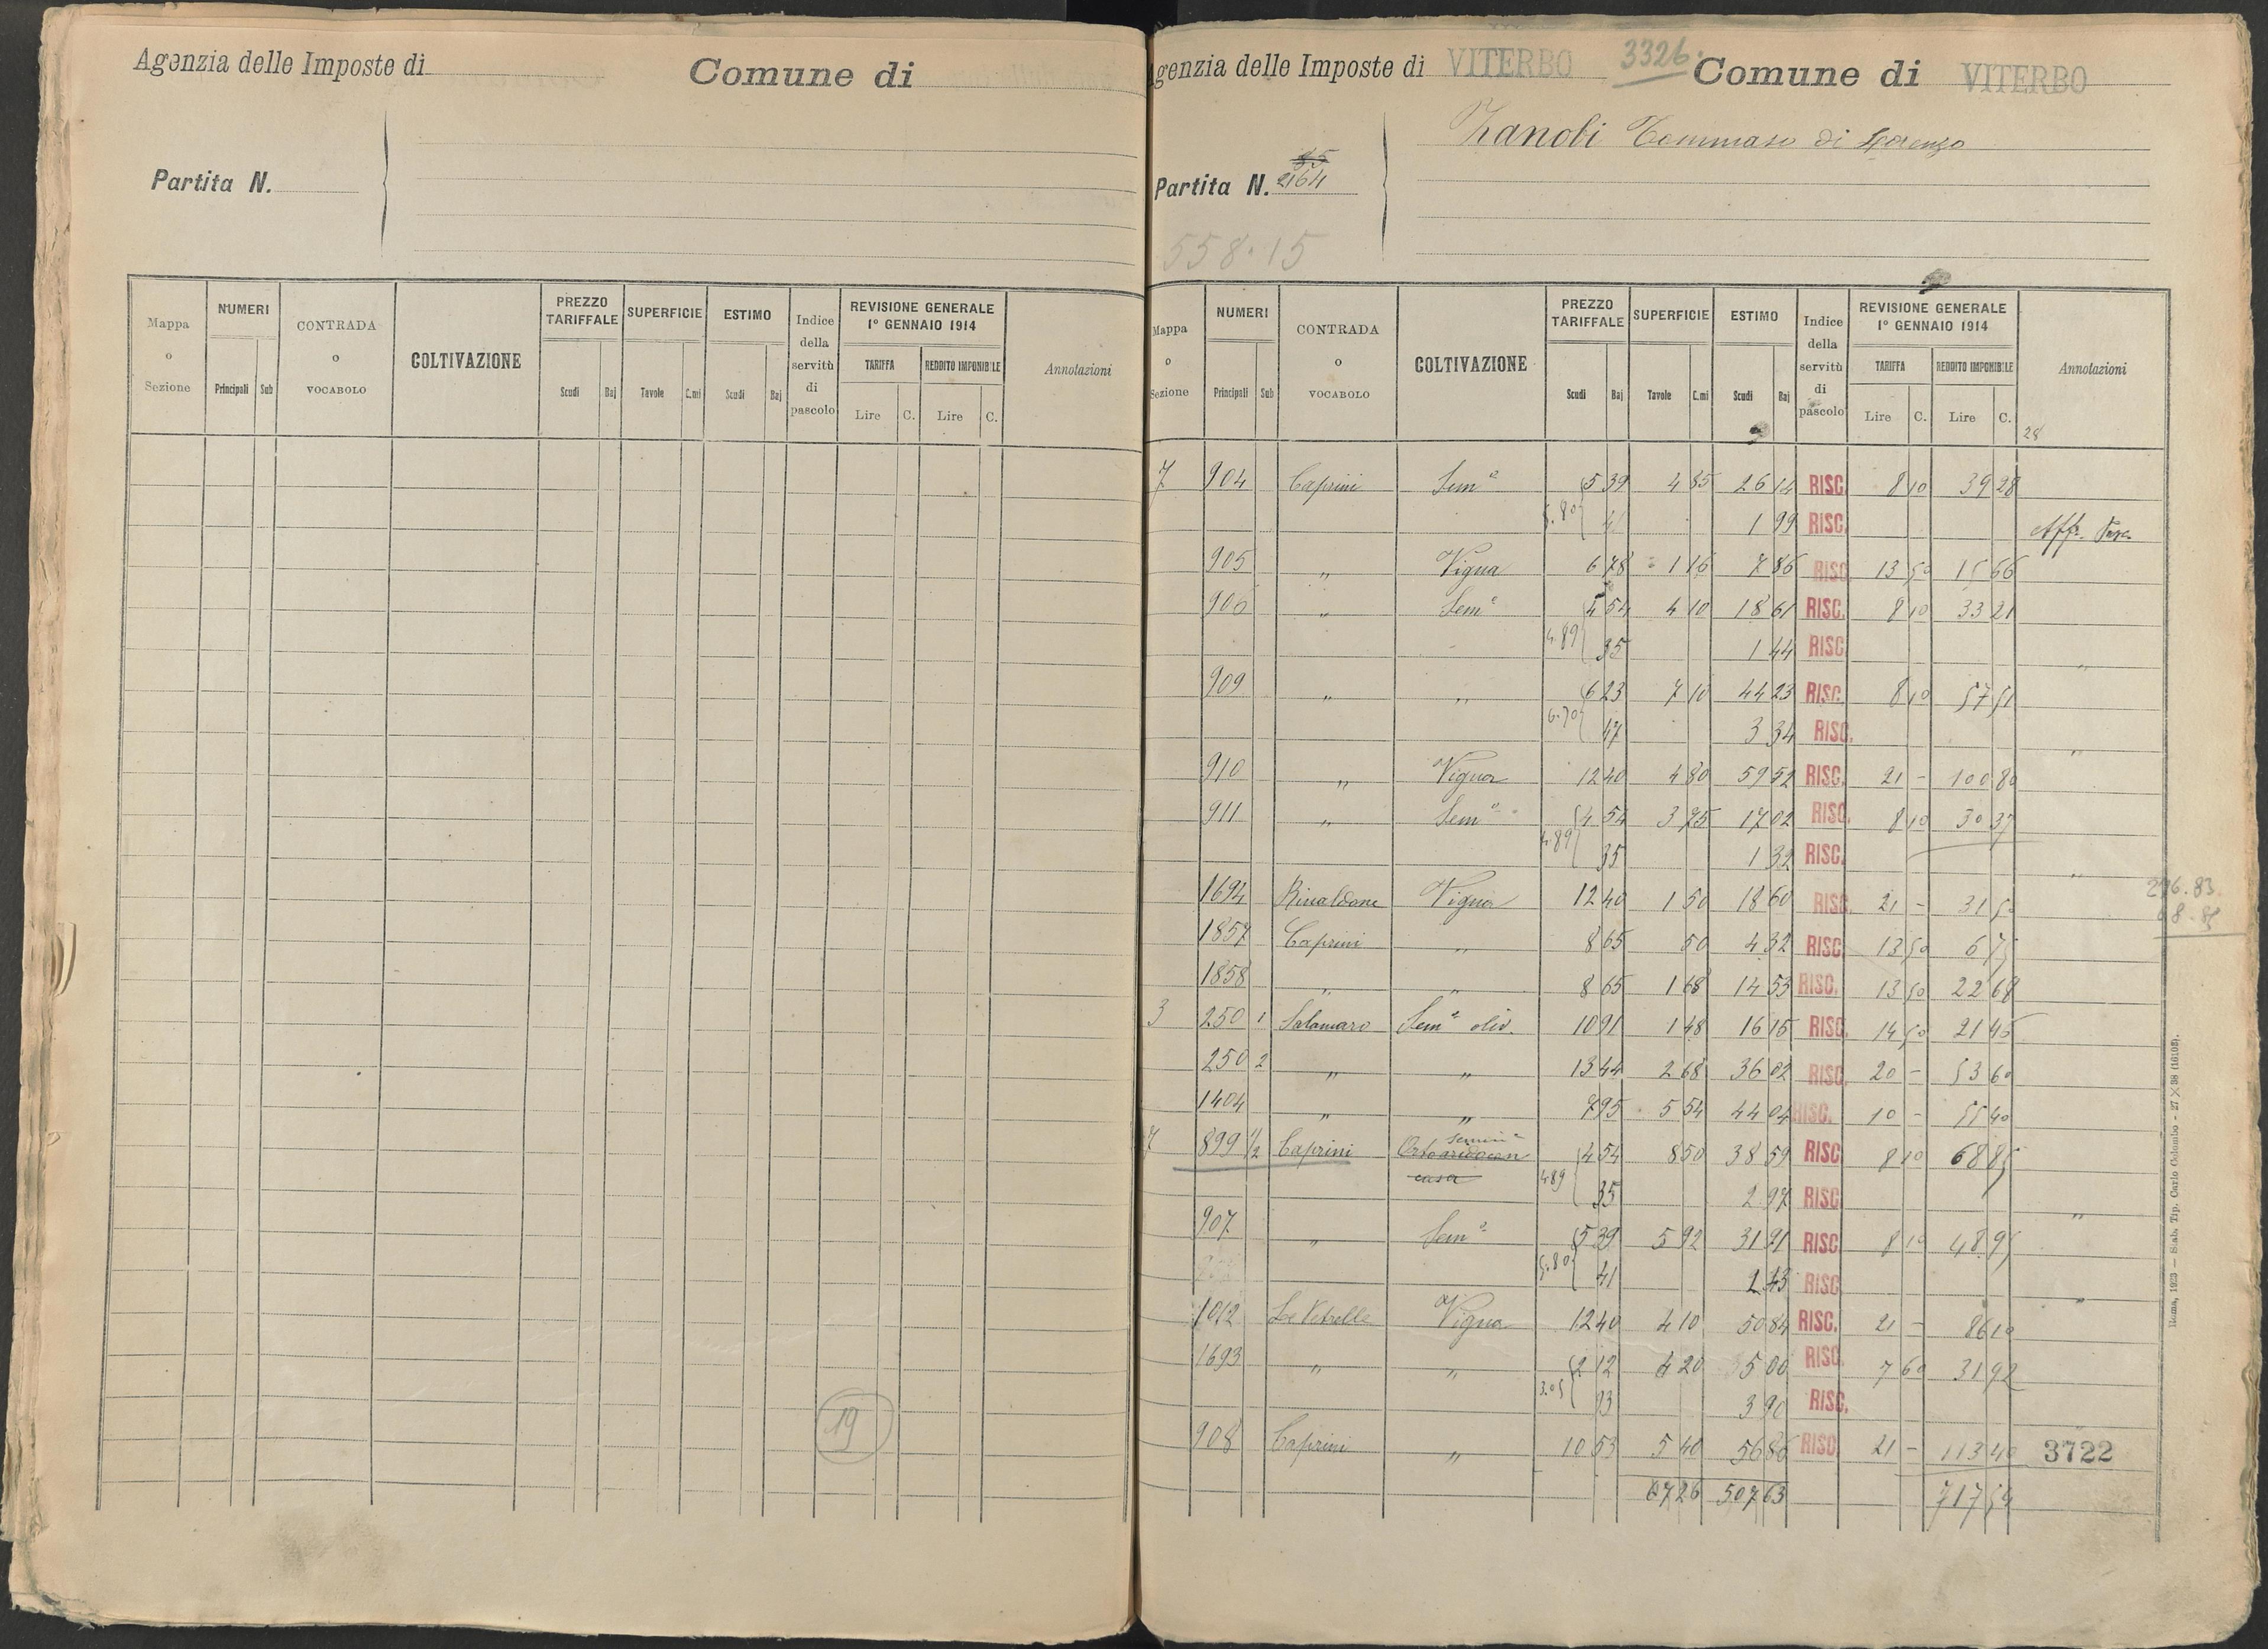 Agenzia delle Imposte di
Comune di
Partita N.
Mappa o Sezione
NUMERI
Principali Sub
CONTRADA o VOCABOLO
COLTIVAZIONE
PREZZO TARIFFALE
Scudi Baj
SUPERFICIE
Tavole C.mi
ESTIMO
Scudi Baj
Indice della servitù di pascolo
REVISIONE GENERALE 1° GENNAIO 1914
TARIFFA REDDITO IMPONIBILE
Lire C. Lire C.
Annotazioni
19
genzia delle Imposte di VITERBO 3326. Comune di VITERBO
Zanobi Tommaso di Lorenzo
85
Partita N. 2164
558.15
Mappa o Sezione
NUMERI
Principali Sub
CONTRADA o VOCABOLO
COLTIVAZIONE
PREZZO TARIFFALE
Scudi Baj
SUPERFICIE
Tavole C.mi
ESTIMO
Scudi Baj
Indice della servitù di pascolo
REVISIONE GENERALE 1° GENNAIO 1914
TARIFFA REDDITO IMPONIBILE
Lire C. Lire C.
Annotazioni
28
7 904 Caprini Sem° 5 39 4 85 26 14 RISC. 8 10 39 28
5.80 41 1 99 RISC. Affr. Pasc.
905 " Vigna 6 78 1 16 7 86 RISC. 13 50 15 66
906 " Sem° 4 54 4 10 18 61 RISC. 8 10 33 21
4.89 35 1 44 RISC. "
909 " " 6 23 7 10 44 23 RISC. 8 10 57 51
6.70 47 3 34 RISC. "
910 " Vigna 12 40 4 80 59 52 RISC. 21 - 100 80
911 " Sem° 4 54 3 75 17 02 RISC. 8 10 30 37
4.89 35 1 32 RISC. "
1694 Rinaldone Vigna 12 40 1 50 18 60 RISC. 21 - 31 50
276.83
68.85
1857 Caprini " 8 65 50 4 32 RISC. 13 50 6 75
1858 " " 8 65 1 68 14 53 RISC. 13 50 22 68
3 250 1 Salamaro Sem° oliv. 10 91 1 48 16 15 RISC. 14 50 21 45
250 2 " " 13 44 2 68 36 02 RISC. 20 - 53 60
1404 " " 7 95 5 54 44 04 RISC. 10 - 55 40
7 899 1/2 Caprini 4 54 8 50 38 59 RISC. 8 10 68 85
casa
4.89 35 2 97 RISC. "
907 " Sem° 5 39 5 92 31 91 RISC. 8 10 48 95
5.80 41 2 43 RISC. "
1012 Le Vetrelle Vigna 12 40 4 10 50 84 RISC. 21 - 86 10
1693 " " 2 12 4 20 5 00 RISC. 7 60 31 92
3.05 93 3 90 RISC.
908 Caprini " 10 53 5 40 56 86 RISC. 21 - 113 40 3722
67 26 507 63 717 54
Roma, 1923 — Stab. Tip. Carlo Colombo - 27 X 38 (16103).